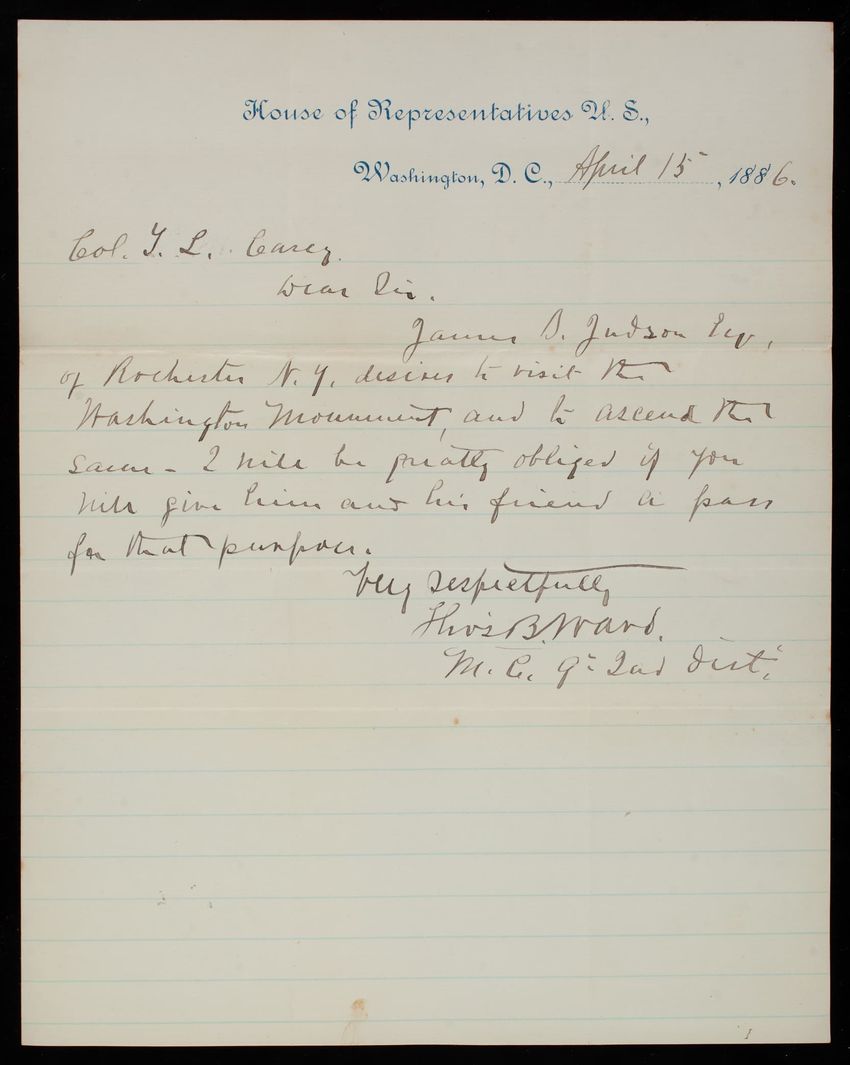 House of Representatives U. S.,
Washington, D. C., April 15, 1886.
Col. T. L. Casey.
Dear Sir.
James S. Judson Esq,
of Rochester N. Y. desires to visit the
Washington Monument, and to ascend the
same - I will be greatly obliged if you
will give him and his friend a pass
for that purpose.
Very respectfully
Tho's B. Ward.
M. C. 2nd Dist.